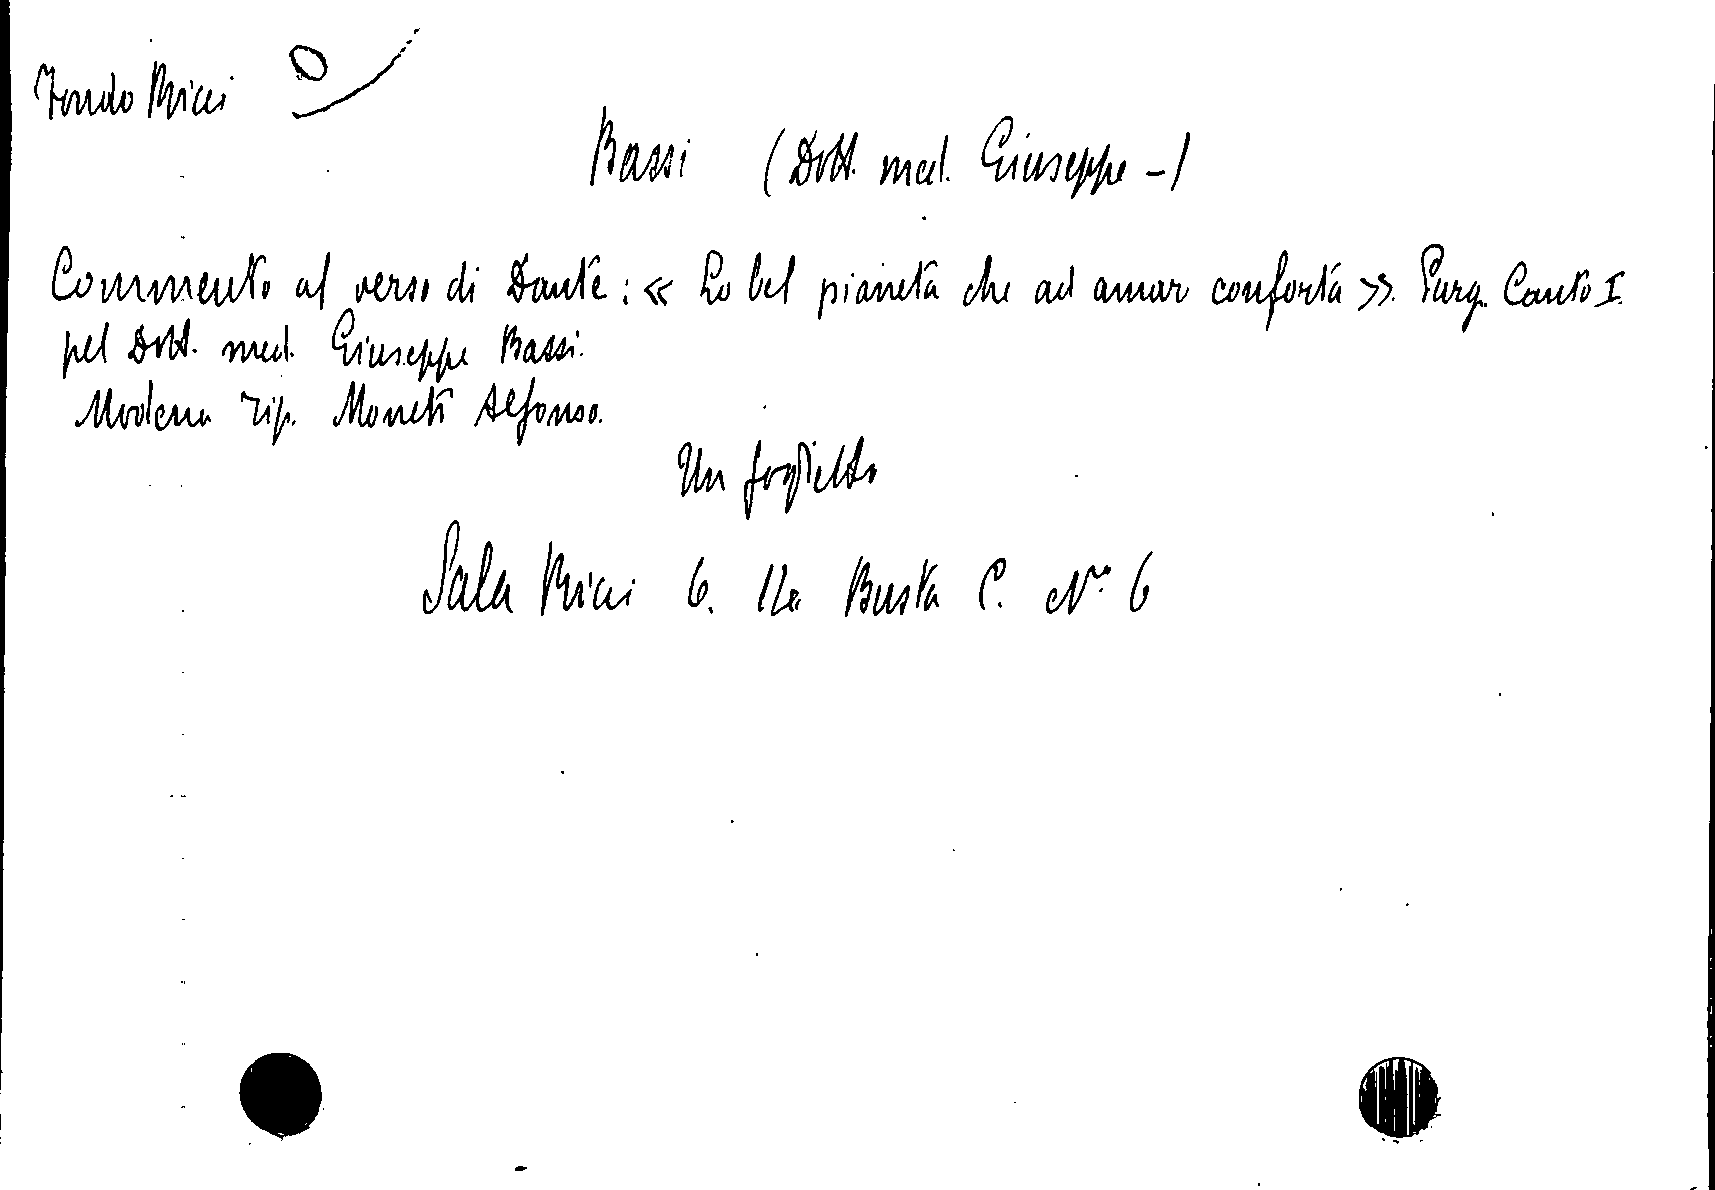 Fondo Ricci
Bassi (Dott. med. Giuseppe -)
Commento al verso di Dante: « Lo bel pianeta che ad amar conforta ». Purg. Canto I.
pel Dott. med. Giuseppe Bassi.
Modena Tip. Moneti Alfonso.
Un foglietto
Sala Ricci 6. Busta C. N° 6